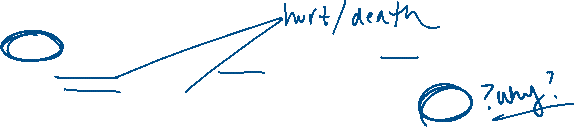 hurt/death
? why?